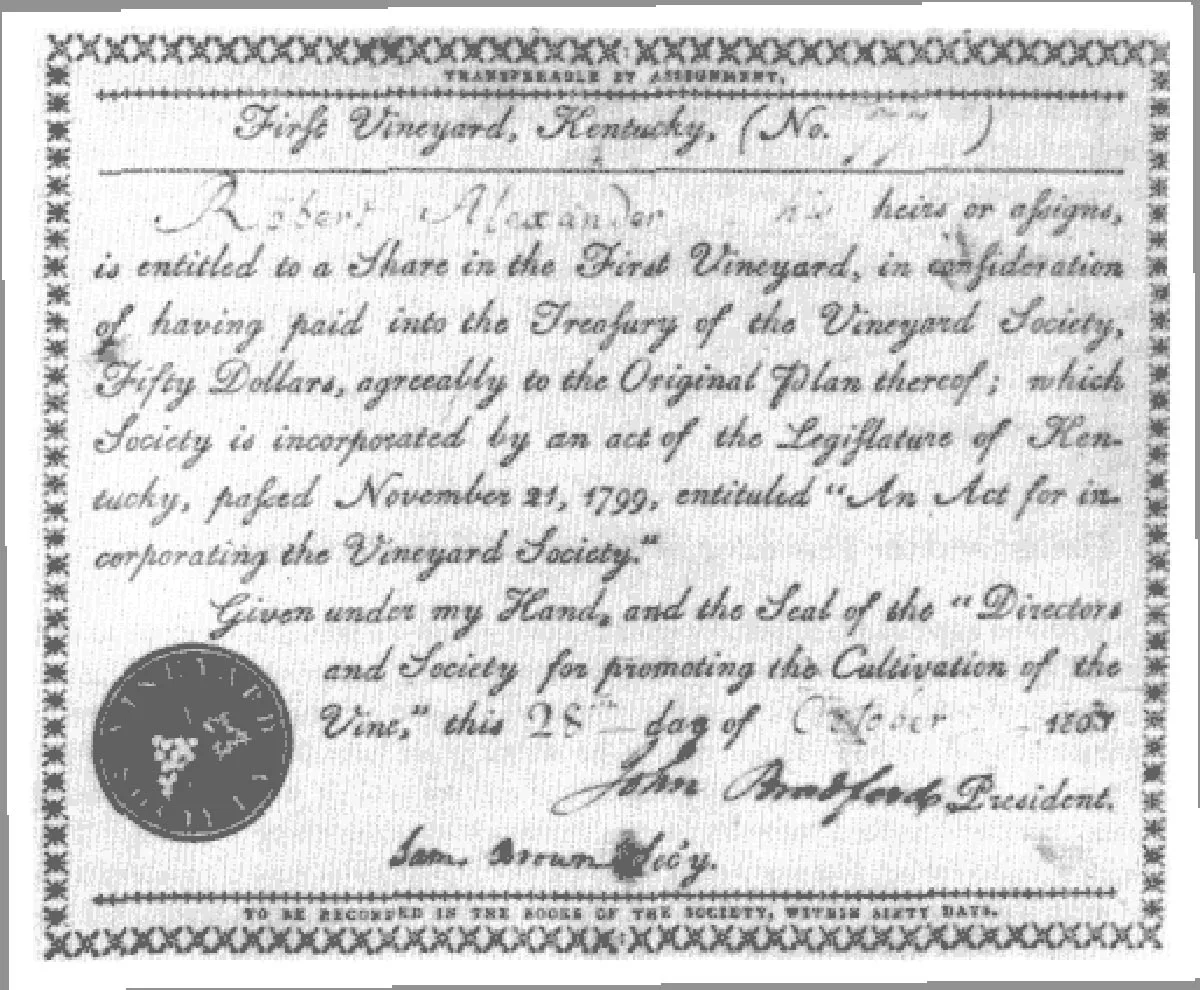 TRANSFERABLE BY ASSIGNMENT.
First Vineyard, Kentucky, (No. 77)
Robert Alexander his heirs or aſsigns,
is entitled to a Share in the First Vineyard, in conſideration
of having paid into the Treaſury of the Vineyard Society,
Fifty Dollars, agreeably to the Original Plan thereof; which
Society is incorporated by an act of the Legiſlature of Ken-
tucky, paſsed November 21, 1799, entituled "An Act for in-
corporating the Vineyard Society."
Given under my Hand, and the Seal of the "Directors
and Society for promoting the Cultivation of the
Vine," this 28th day of October
John Bradford, President.
Sam. Brown Sec'y.
TO BE RECORDED IN THE BOOKS OF THE SOCIETY, WITHIN SIXTY DAYS.